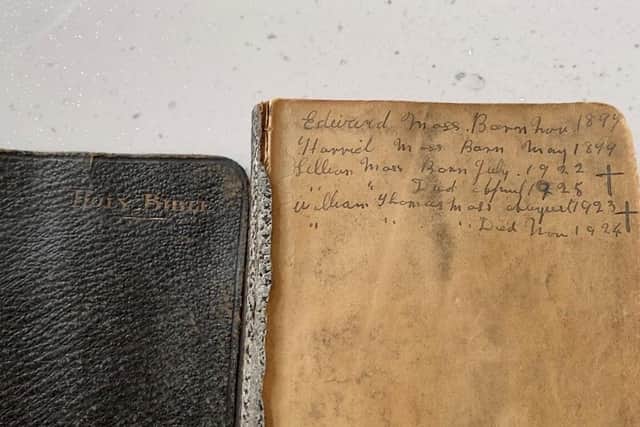 HOLY BIBLE
Edward Moss. Born Nov. 1899
Harriet Moss Born May 1899
Lillian Moss Born July. 1922 †
" " Died April 1925
William Thomas Moss August 1923 †
" " " Died Nov 1924